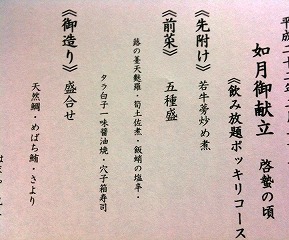 平成二十二年
如月御献立 啓蟄の頃
《飲み放題ポッキリコース
《先附け》 若牛蒡炒め煮
《前菜》 五種盛
蕗の薹天麩羅・筍土佐煮・飯蛸の塩辛・
タラ白子一味醤油焼・穴子箱寿司
《御造り》 盛合せ
天然鯛・めばち鮪・さより